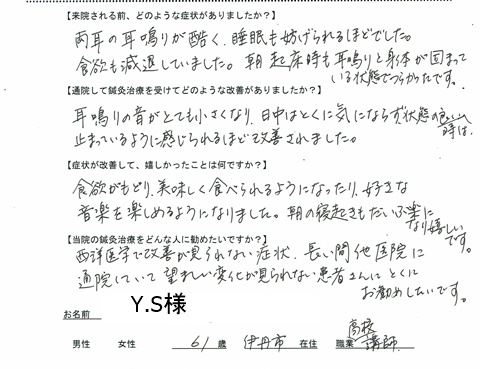 【来院される前、どのような症状がありましたか？】
両耳の耳鳴りが酷く、睡眠も妨げられるほどでした。
食欲も減退していました。朝起床時も耳鳴りと身体が固まって
いる状態でつらかったです。
【通院して鍼灸治療を受けてどのような改善がありましたか？】
耳鳴りの音がとても小さくなり、日中はとくに気にならず状態の良い時は、
止まっているように感じられるほど改善されました。
【症状が改善して、嬉しかったことは何ですか？】
食欲がもどり、美味しく食べられるようになったり、好きな
音楽を楽しめるようになりました。朝の寝起きもだいぶ楽に
なり嬉しいです。
【当院の鍼灸治療をどんな人に勧めたいですか？】
西洋医学で改善が見られない症状、長い間他医院に
通院していて望ましい変化が見られない患者さんにとくに
お勧めしたいです。
お名前 Y.S様
男性 女性 61歳 伊丹市 在住 職業 高校講師